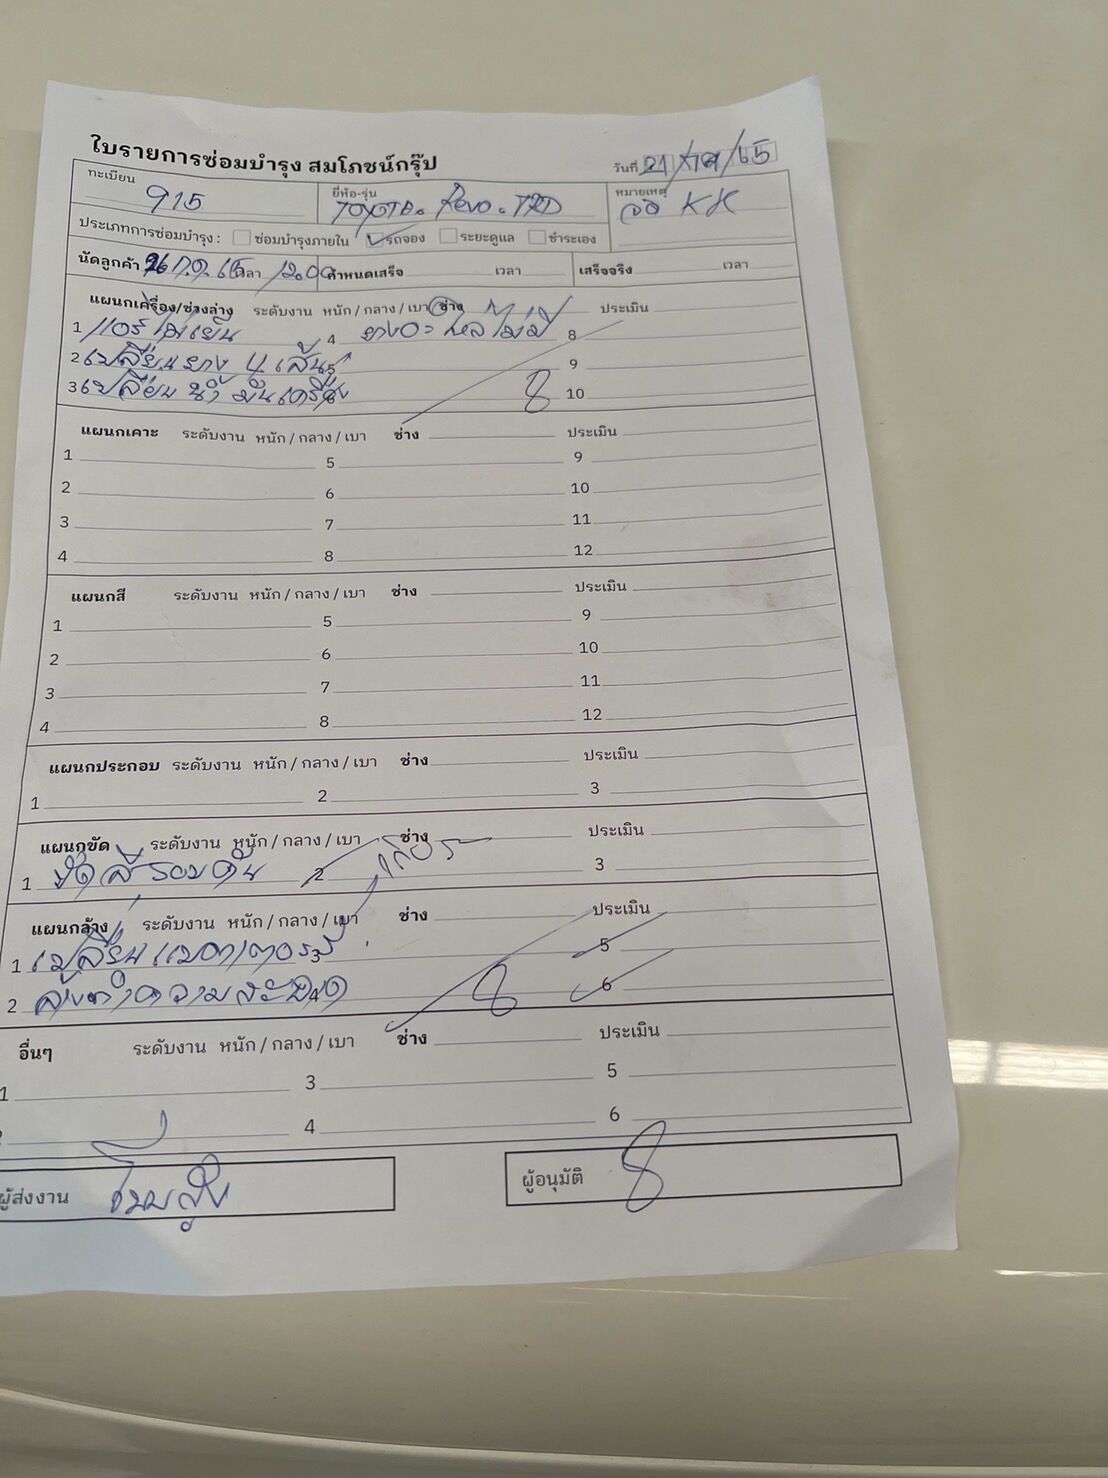 ใบรายการซ่อมบำรุง สมโภชน์กรุ๊ป
วันที่ 21/กค/65
ทะเบียน 915 ยี่ห้อ-รุ่น TOYOTA. Revo. TRD หมายเหตุ จอ KK
ประเภทการซ่อมบำรุง : ซ่อมบำรุงภายใน รถจอง ระยะดูแล ชำระเอง
นัดลูกค้า 26 ก.ค. 65 เวลา 12.00 กำหนดเสร็จ เวลา เสร็จจริง เวลา
แผนกเครื่อง/ช่วงล่าง ระดับงาน หนัก / กลาง / เบา ช่าง ประเมิน
1 แอร์ไม่เย็น 4 ยางอะไหล่ไม่มี 8
2 เปลี่ยนยาง 4 เส้น 5 9
3 เปลี่ยนน้ำมันเครื่อง 10
แผนกเคาะ ระดับงาน หนัก / กลาง / เบา ช่าง ประเมิน
1 5 9
2 6 10
3 7 11
4 8 12
แผนกสี ระดับงาน หนัก / กลาง / เบา ช่าง ประเมิน
1 5 9
2 6 10
3 7 11
4 8 12
แผนกประกอบ ระดับงาน หนัก / กลาง / เบา ช่าง ประเมิน
1 2 3
แผนกขัด ระดับงาน หนัก / กลาง / เบา ช่าง ประเมิน
1 ขัดสีรอบคัน 2 3
แผนกล้าง ระดับงาน หนัก / กลาง / เบา ช่าง ประเมิน
1 เปลี่ยนแบตเตอรรี่ 3 5
2 ล้างทำความสะอาด 4 6
อื่นๆ ระดับงาน หนัก / กลาง / เบา ช่าง ประเมิน
1 3 5
4 6
ผู้ส่งงาน
ผู้อนุมัติ